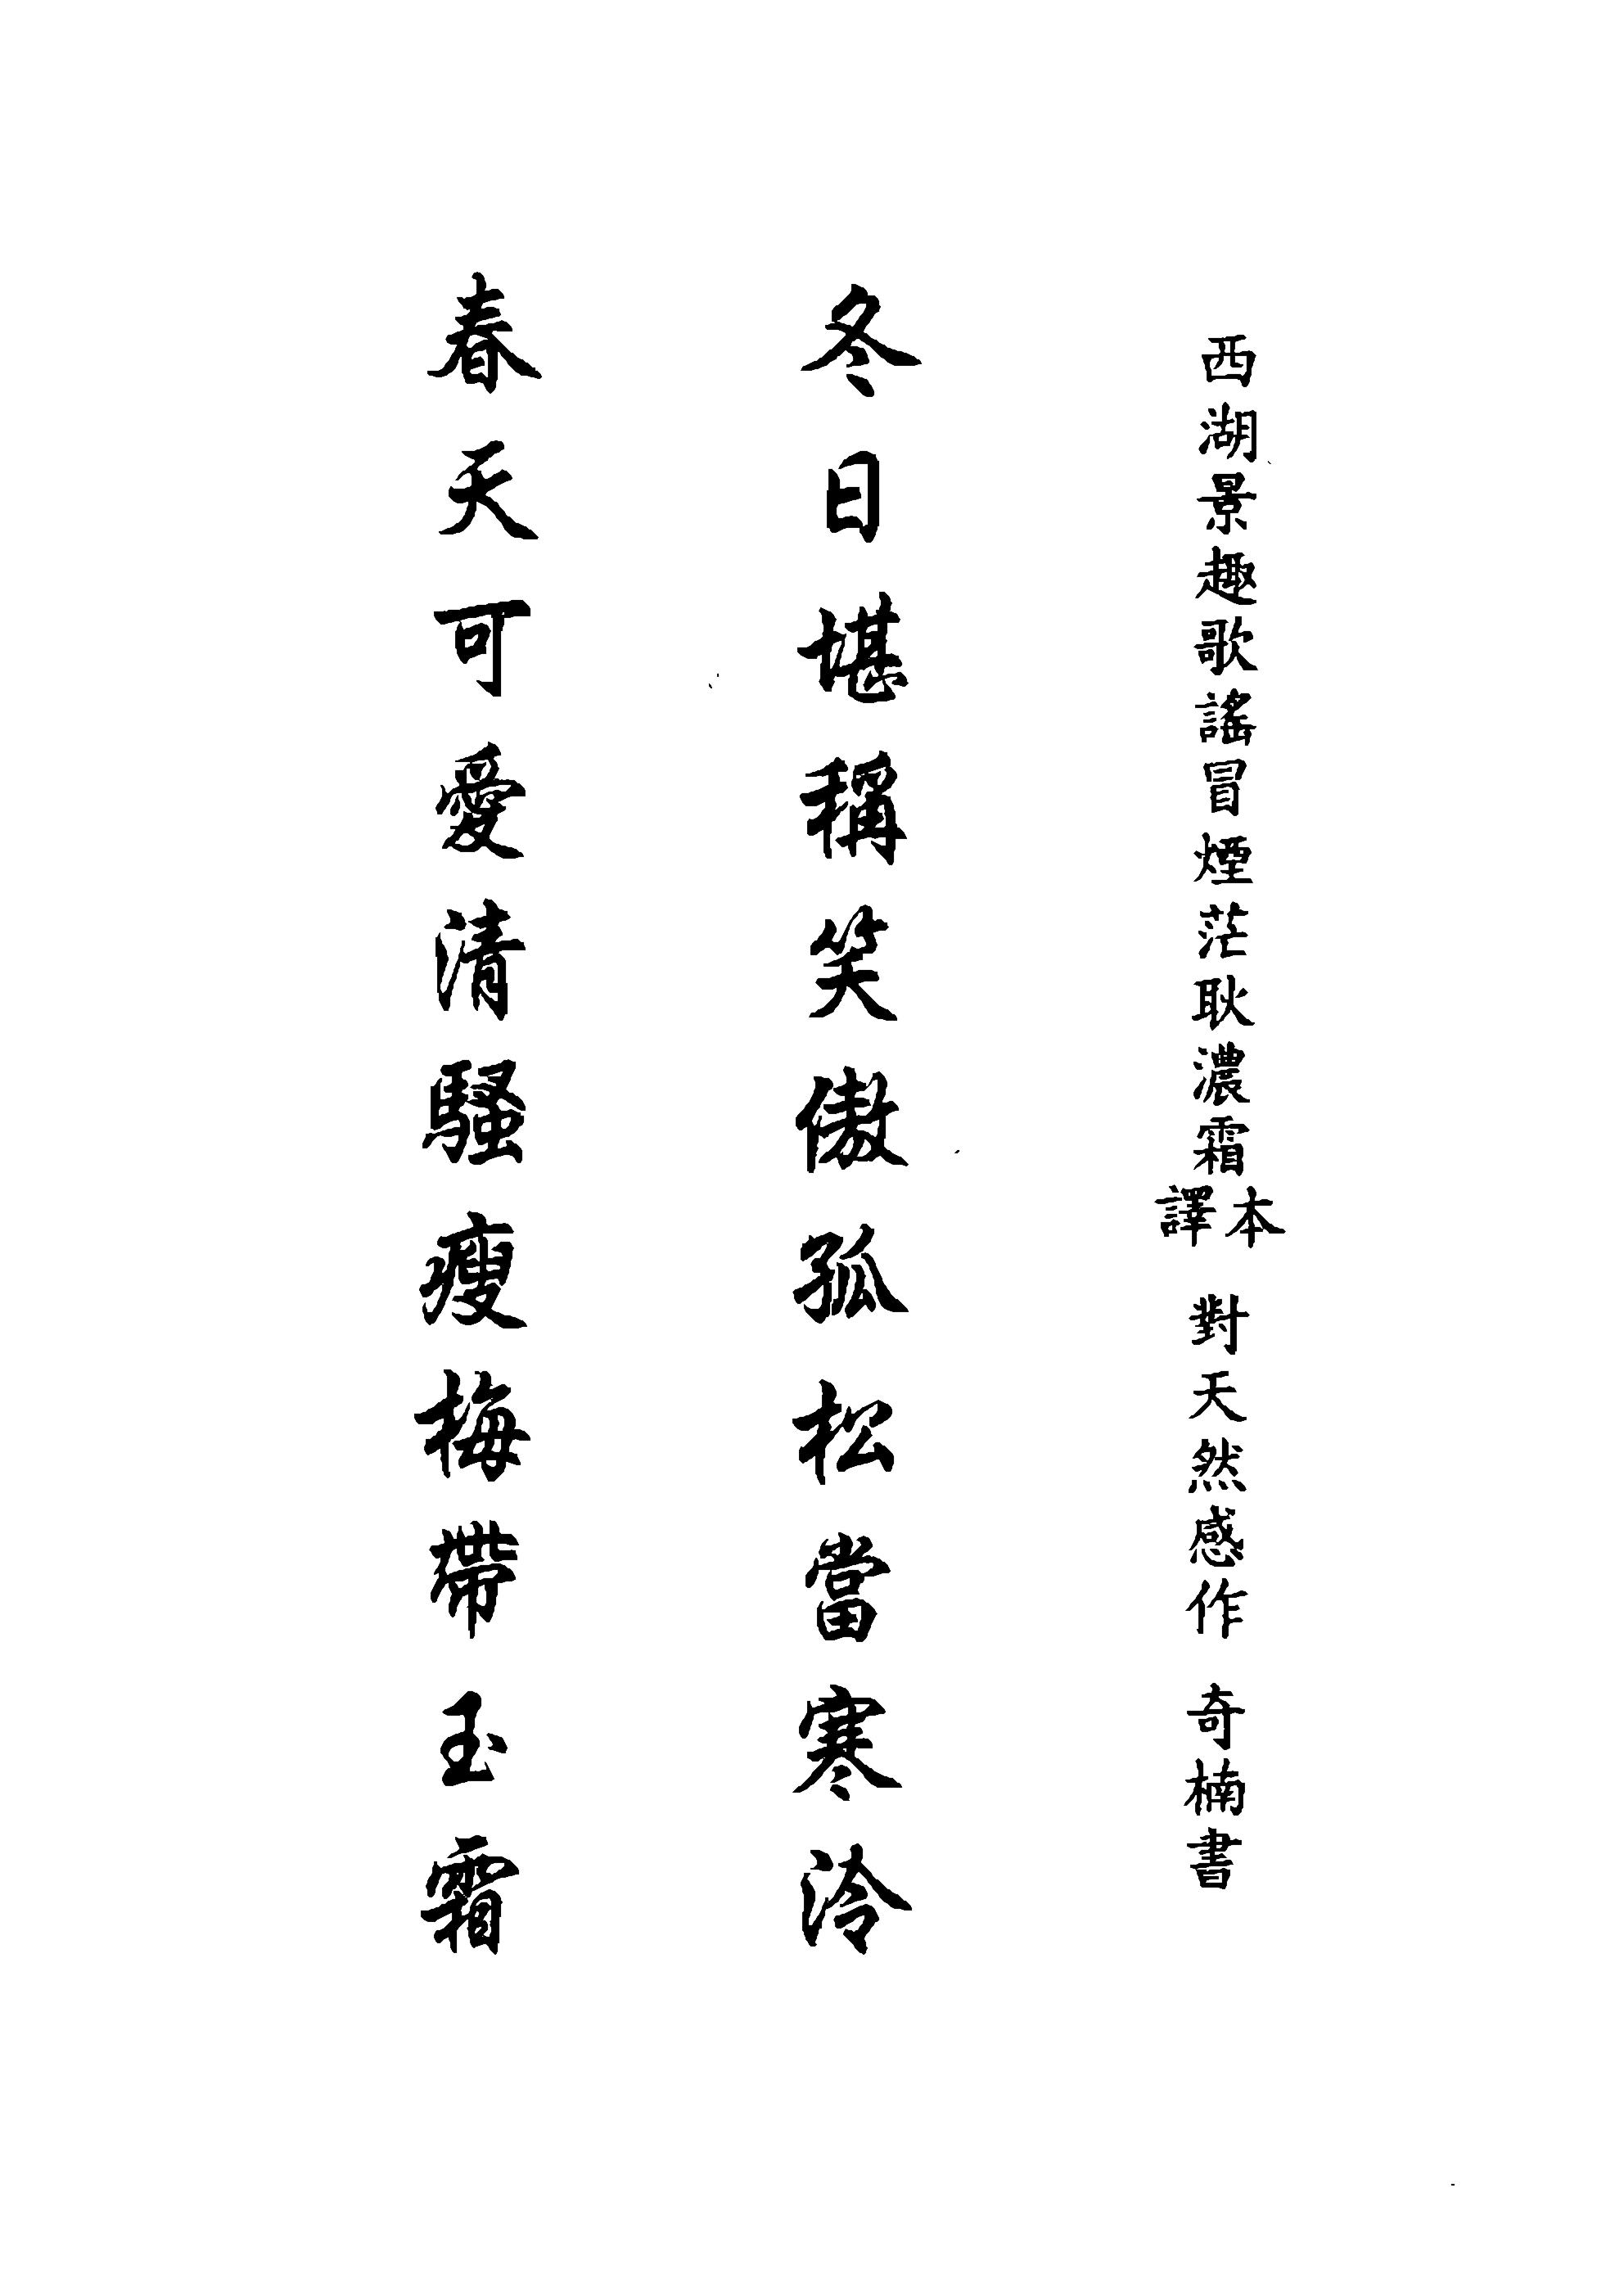 西湖景趣歌謠冒煙茫耿濃霜本譯 對天然感作 奇楠書
冬日堪稱笑傲孤松當寒泠
春天可愛清騷瘦梅帶玉霜